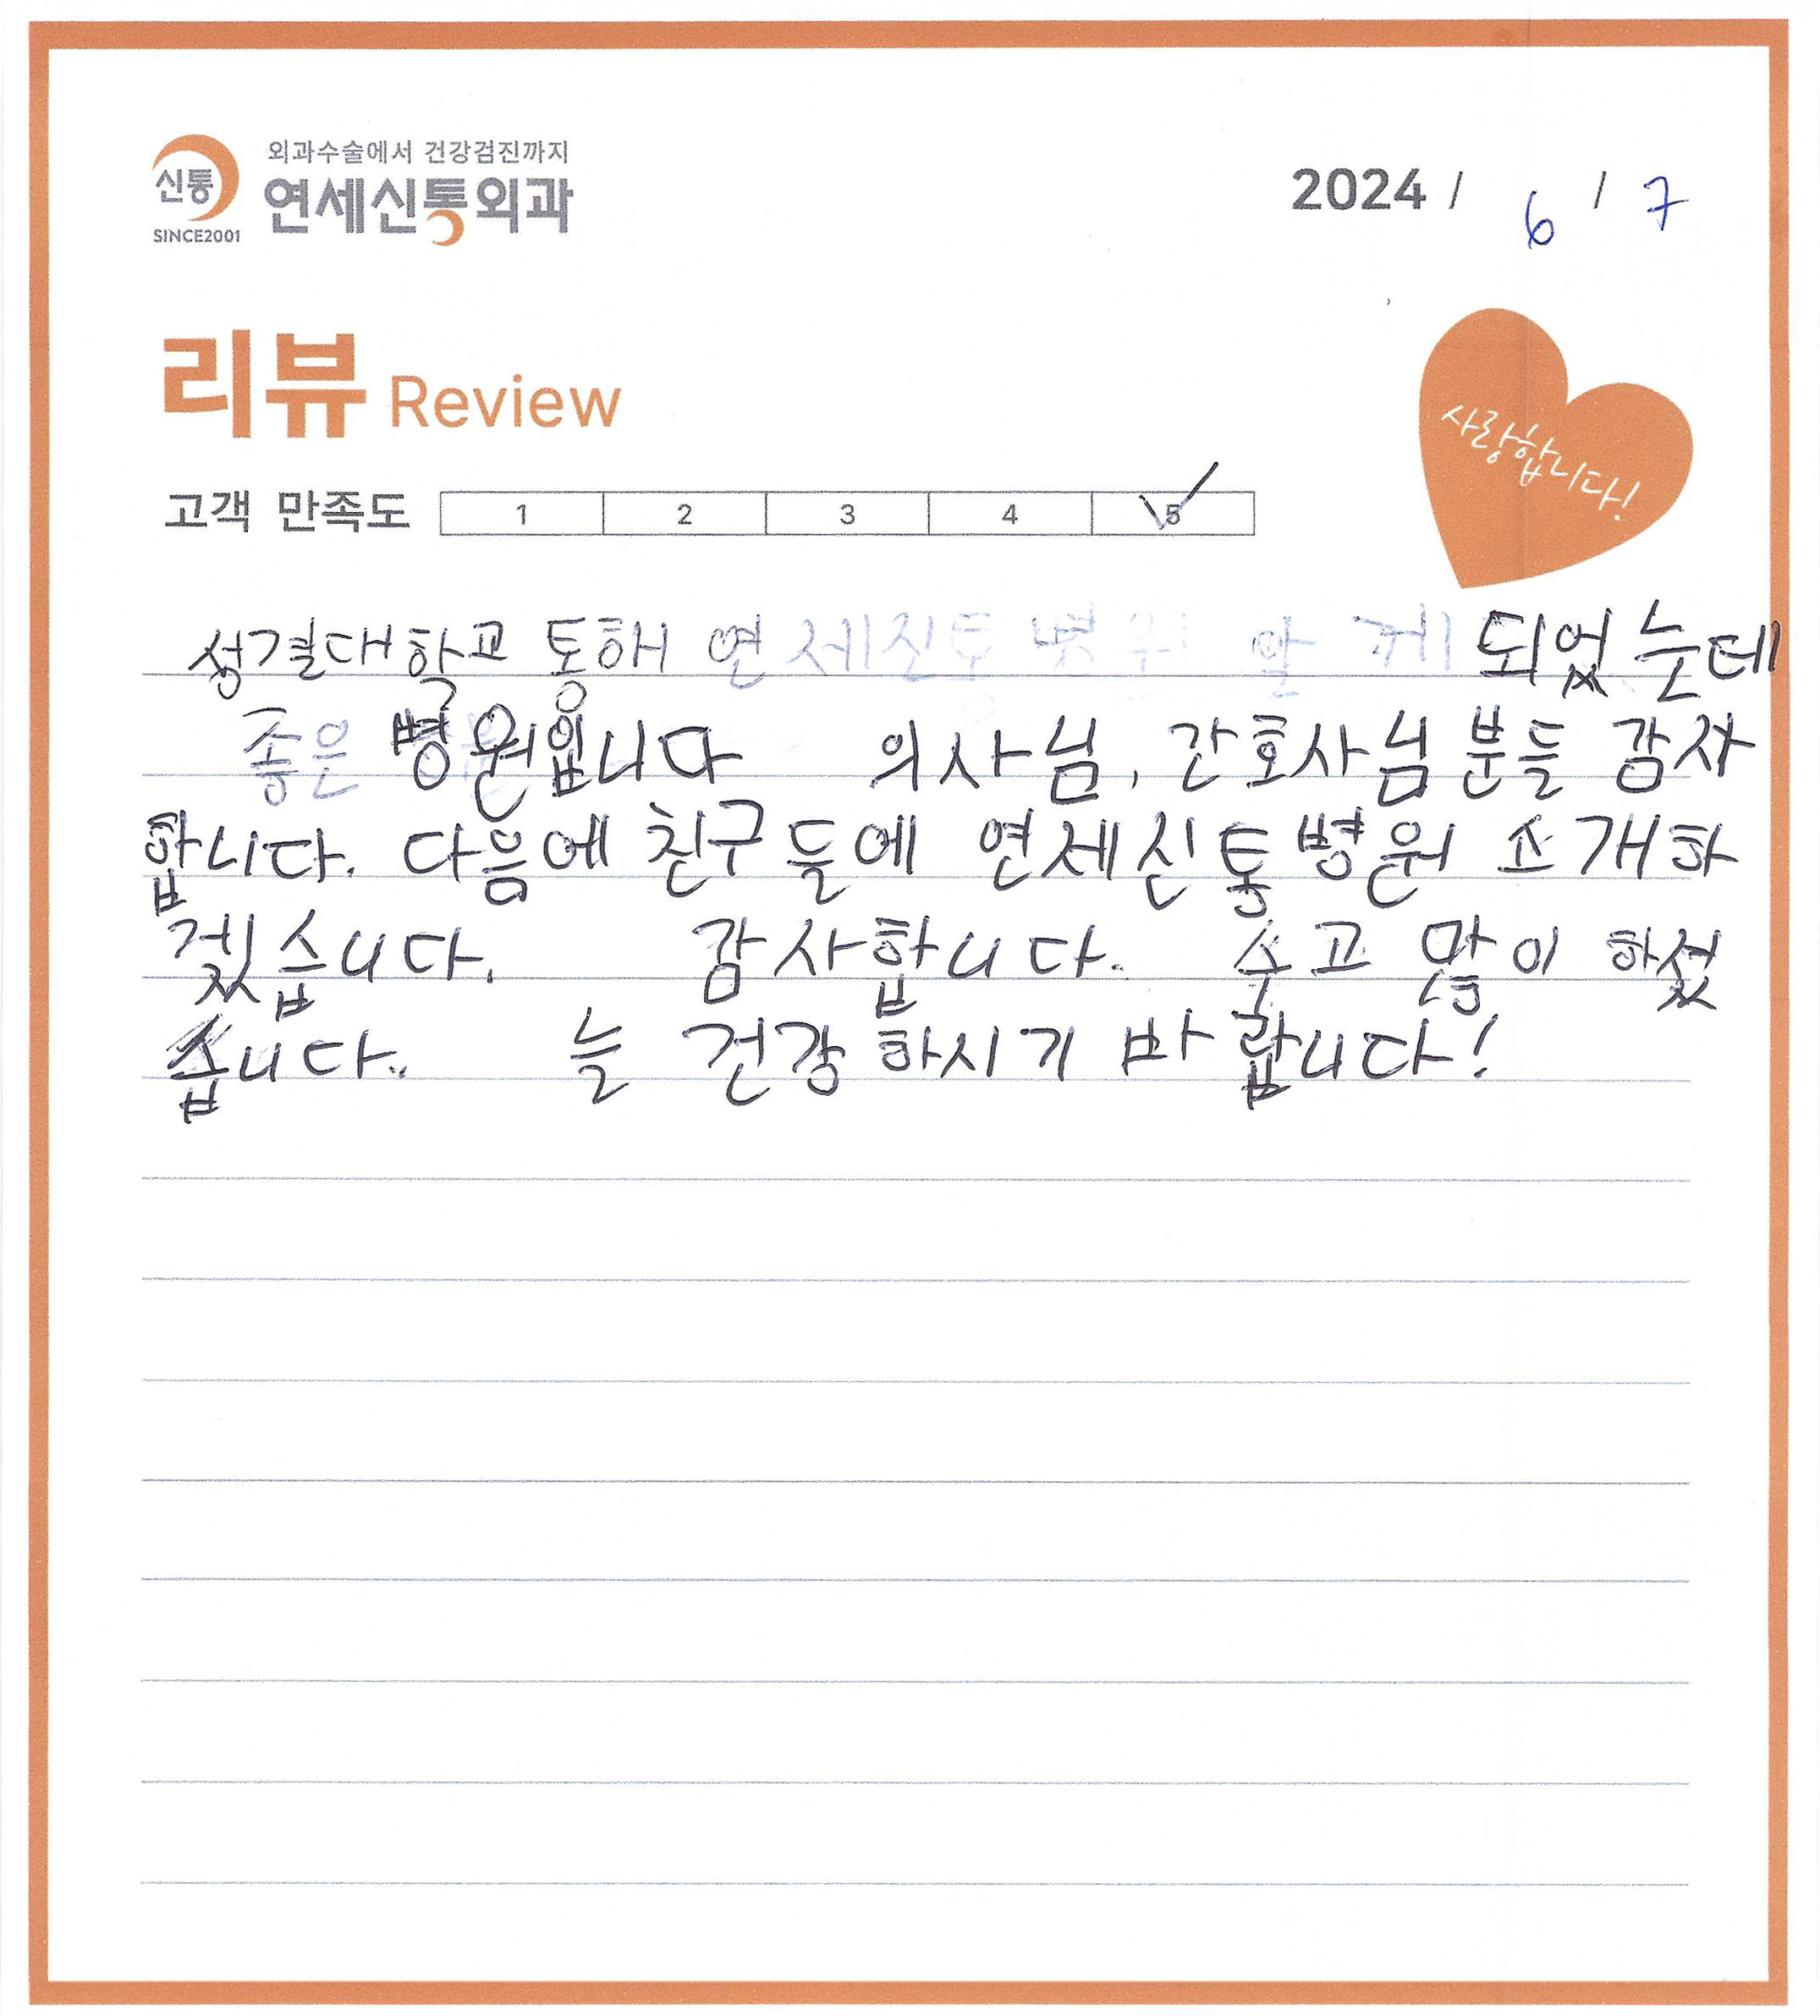 외과수술에서 건강검진까지
신통
연세신통외과
SINCE2001
2024 / 6 / 7
리뷰 Review
사랑합니다!
고객 만족도 1 2 3 4 5
성결대학교 통해 연세진통병원 알 께 되었는데
좋은 병원입니다 의사님, 간호사님 분들 감사
합니다. 다음에 친구들에 연세신통병원 소개하
겠습니다. 감사합니다. 수고 많이 하셨
습니다.. 늘 건강하시기 바랍니다!